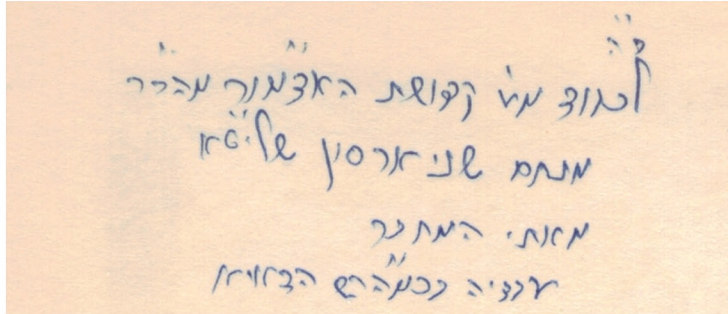 ב"ה
לכבוד מע' קדושת האדמו"ר מהר"ר
מנחם שניארסון שליט"א
מאתי המחבר
עבדיה בכמהר"ש